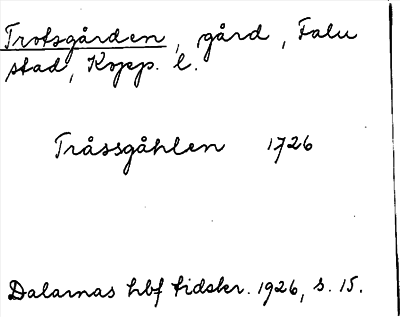 Trotsgården, gård, Falu
stad, Kopp. l.
Tråssgåhlen 1726
Dalarnas hbf tidskr. 1926, s. 15.